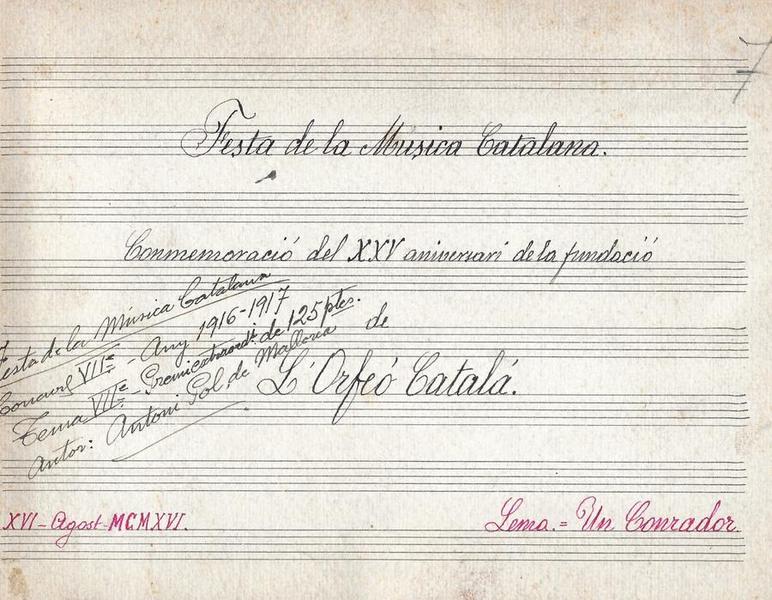 7
Festa de la Música Catalana.
Conmemoració del XXV aniversari de la fundació
de
L'Orfeó Catalá.
Festa de la Música Catalana
Concurs VIIè - Any 1916-1917
Tema VIIè - Premi extraord. de 125 ptes.
Autor: Antoni Pol, de Mallorca
XVI - Agost - MCMXVI.
Lema. = Un Conrador.